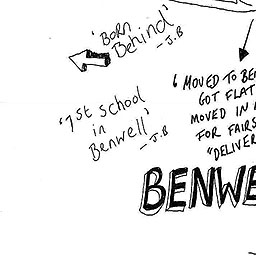 'BORN
Behind'
- J.B
'1st School
in
Benwell'
- J.B
' MOVED TO
GOT FLAT
MOVED IN
FOR FAIRS
"DELIVER
BENWE